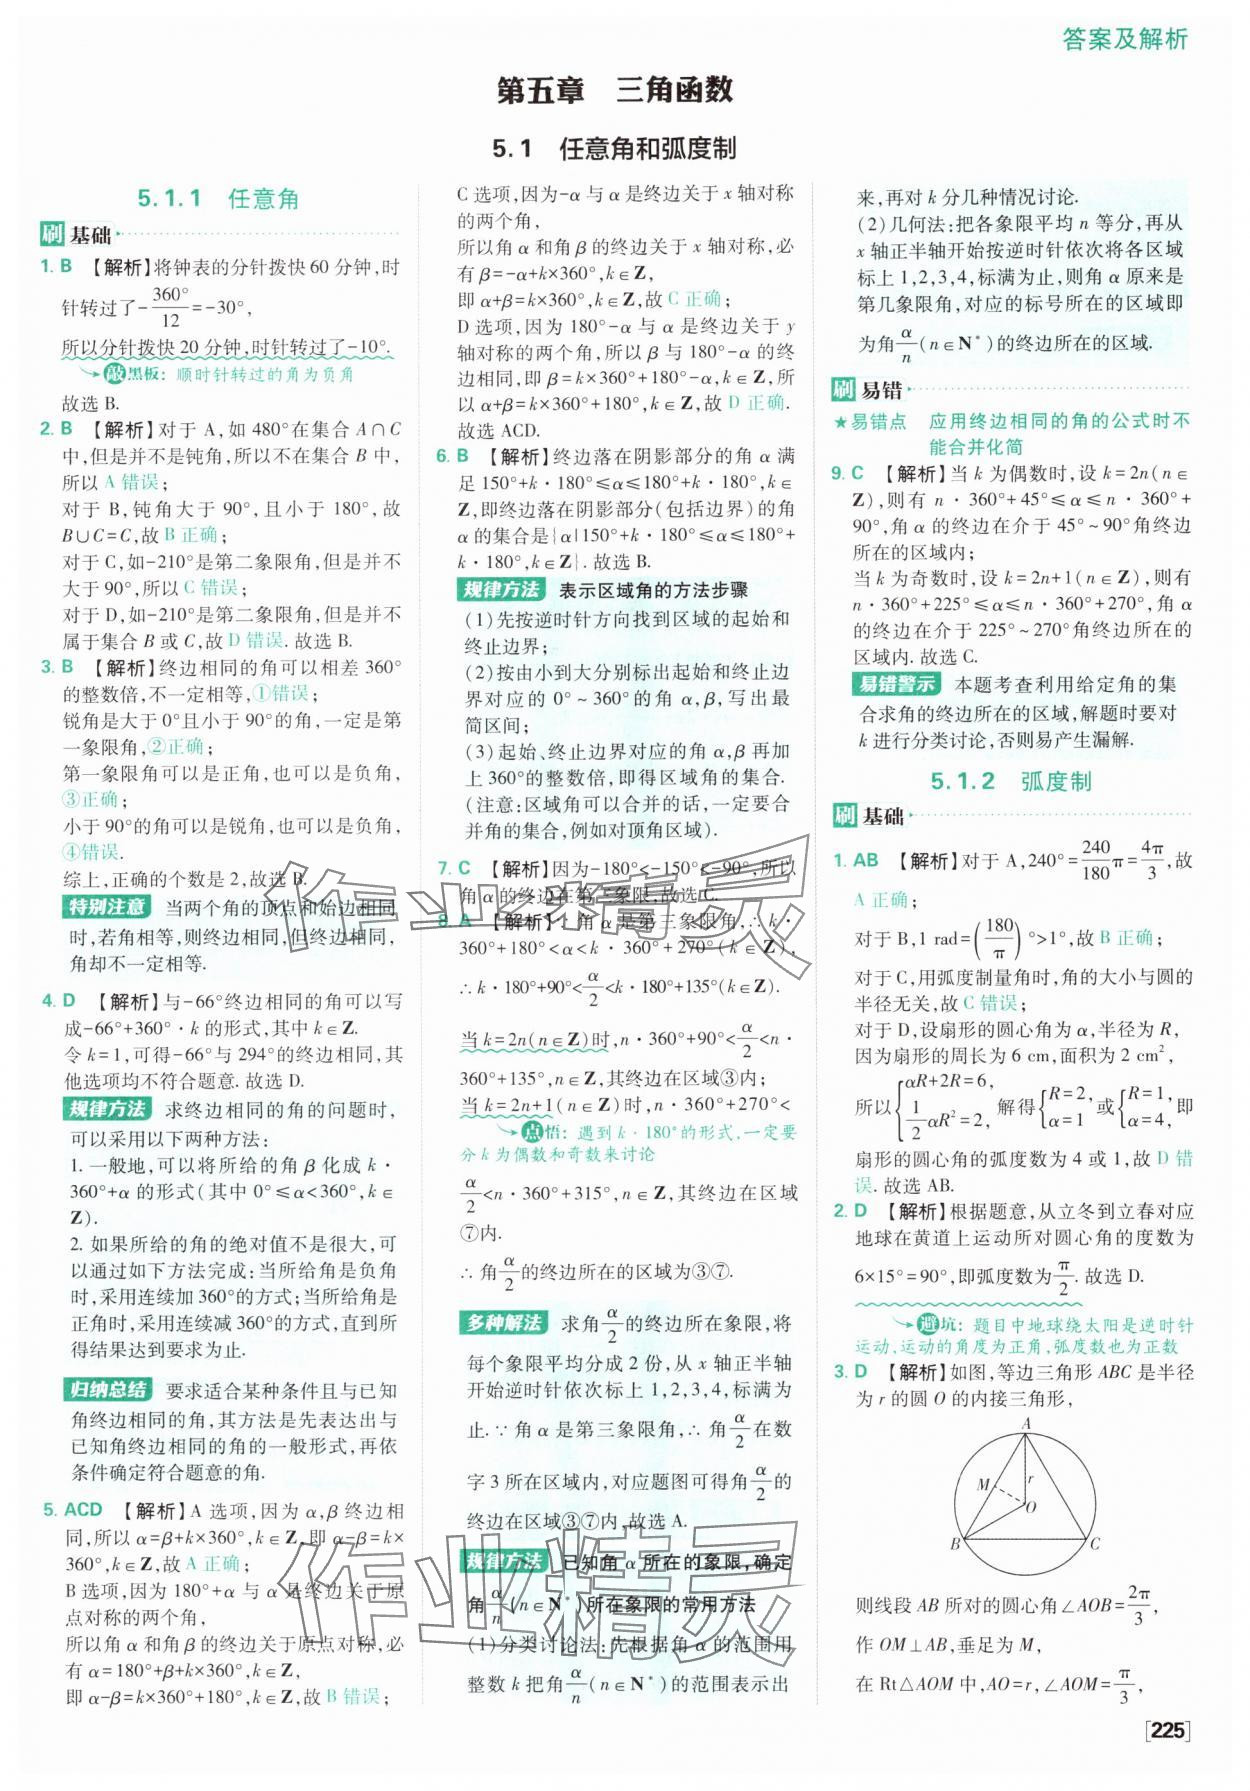 答案及解析
第五章 三角函数
5.1 任意角和弧度制
5.1.1 任意角
刷基础
1. B 【解析】将钟表的分针拨快60分钟,时
针转过了-360°/12=-30°,
所以分针拨快20分钟,时针转过了-10°.
敲黑板:顺时针转过的角为负角
故选B.
2. B 【解析】对于A,如480°在集合A∩C
中,但是并不是钝角,所以不在集合B中,
所以A错误;
对于B,钝角大于90°,且小于180°,故
B∪C=C,故B正确;
对于C,如-210°是第二象限角,但是并不
大于90°,所以C错误;
对于D,如-210°是第二象限角,但是并不
属于集合B或C,故D错误.故选B.
3. B 【解析】终边相同的角可以相差360°
的整数倍,不一定相等,①错误;
锐角是大于0°且小于90°的角,一定是第
一象限角,②正确;
第一象限角可以是正角,也可以是负角,
③正确;
小于90°的角可以是锐角,也可以是负角,
④错误.
综上,正确的个数是2,故选B.
特别注意 当两个角的顶点和始边相同
时,若角相等,则终边相同,但终边相同,
角却不一定相等.
4. D 【解析】与-66°终边相同的角可以写
成-66°+360°·k的形式,其中k∈Z.
令k=1,可得-66°与294°的终边相同,其
他选项均不符合题意.故选D.
规律方法 求终边相同的角的问题时,
可以采用以下两种方法:
1. 一般地,可以将所给的角β化成k·
360°+α的形式(其中0°≤α<360°,k∈
Z).
2. 如果所给的角的绝对值不是很大,可
以通过如下方法完成:当所给角是负角
时,采用连续加360°的方式;当所给角是
正角时,采用连续减360°的方式,直到所
得结果达到要求为止.
归纳总结 要求适合某种条件且与已知
角终边相同的角,其方法是先表达出与
已知角终边相同的角的一般形式,再依
条件确定符合题意的角.
5. ACD 【解析】A选项,因为α,β终边相
同,所以α=β+k×360°,k∈Z,即α-β=k×
360°,k∈Z,故A正确;
B选项,因为180°+α与α是终边关于原
点对称的两个角,
所以角α和角β的终边关于原点对称,必
有α=180°+β+k×360°,k∈Z,
即α-β=k×360°+180°,k∈Z,故B错误;
C选项,因为-α与α是终边关于x轴对称
的两个角,
所以角α和角β的终边关于x轴对称,必
有β=-α+k×360°,k∈Z,
即α+β=k×360°,k∈Z,故C正确;
D选项,因为180°-α与α是终边关于y
轴对称的两个角,所以β与180°-α的终
边相同,即β=k×360°+180°-α,k∈Z,所
以α+β=k×360°+180°,k∈Z,故D正确.
故选ACD.
6. B 【解析】终边落在阴影部分的角α满
足150°+k·180°≤α≤180°+k·180°,k∈
Z,即终边落在阴影部分(包括边界)的角
α的集合是{α|150°+k·180°≤α≤180°+
k·180°,k∈Z}.故选B.
规律方法 表示区域角的方法步骤
(1)先按逆时针方向找到区域的起始和
终止边界;
(2)按由小到大分别标出起始和终止边
界对应的0°~360°的角α,β,写出最
简区间;
(3)起始、终止边界对应的角α,β再加
上360°的整数倍,即得区域角的集合.
(注意:区域角可以合并的话,一定要合
并角的集合,例如对顶角区域).
7. C 【解析】因为-180°<-150°<-90°,所以
角α的终边在第三象限,故选C.
8. A 【解析】∵角α是第三象限角,∴k·
360°+180°<α<k·360°+270°(k∈Z),
∴k·180°+90°<α/2<k·180°+135°(k∈Z).
当k=2n(n∈Z)时,n·360°+90°<α/2<n·
360°+135°,n∈Z,其终边在区域③内;
当k=2n+1(n∈Z)时,n·360°+270°<
点悟:遇到k·180°的形式,一定要
分k为偶数和奇数来讨论
α/2<n·360°+315°,n∈Z,其终边在区域
⑦内.
∴角α/2的终边所在的区域为③⑦.
多种解法 求角α/2的终边所在象限,将
每个象限平均分成2份,从x轴正半轴
开始逆时针依次标上1,2,3,4,标满为
止.∵角α是第三象限角,∴角α/2在数
字3所在区域内,对应题图可得角α/2的
终边在区域③⑦内,故选A.
规律方法 已知角α所在的象限,确定
角α/n(n∈N*)所在象限的常用方法
(1)分类讨论法:先根据角α的范围用
整数k把角α/n(n∈N*)的范围表示出
来,再对k分几种情况讨论.
(2)几何法:把各象限平均n等分,再从
x轴正半轴开始按逆时针依次将各区域
标上1,2,3,4,标满为止,则角α原来是
第几象限角,对应的标号所在的区域即
为角α/n(n∈N*)的终边所在的区域.
刷易错
★易错点 应用终边相同的角的公式时不
能合并化简
9. C 【解析】当k为偶数时,设k=2n(n∈
Z),则有n·360°+45°≤α≤n·360°+
90°,角α的终边在介于45°~90°角终边
所在的区域内;
当k为奇数时,设k=2n+1(n∈Z),则有
n·360°+225°≤α≤n·360°+270°,角α
的终边在介于225°~270°角终边所在的
区域内.故选C.
易错警示 本题考查利用给定角的集
合求角的终边所在的区域,解题时要对
k进行分类讨论,否则易产生漏解.
5.1.2 弧度制
刷基础
1. AB 【解析】对于A,240°=240/180π=4π/3,故
A正确;
对于B,1 rad=(180/π)°>1°,故B正确;
对于C,用弧度制量角时,角的大小与圆的
半径无关,故C错误;
对于D,设扇形的圆心角为α,半径为R,
因为扇形的周长为6 cm,面积为2 cm²,
所以{αR+2R=6, 1/2αR²=2, 解得{R=2, α=1 或{R=1, α=4, 即
扇形的圆心角的弧度数为4或1,故D错
误.故选AB.
2. D 【解析】根据题意,从立冬到立春对应
地球在黄道上运动所对圆心角的度数为
6×15°=90°,即弧度数为π/2.故选D.
避坑:题目中地球绕太阳是逆时针
运动,运动的角度为正角,弧度数也为正数
3. D 【解析】如图,等边三角形ABC是半径
为r的圆O的内接三角形,
A
M
r
O
B
C
则线段AB所对的圆心角∠AOB=2π/3,
作OM⊥AB,垂足为M,
在Rt△AOM中,AO=r,∠AOM=π/3,
作业精灵
作业精灵
[225]